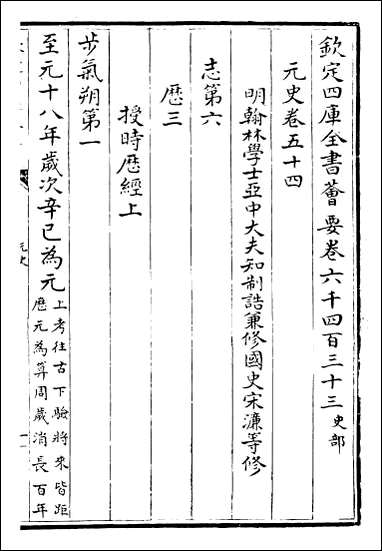 欽定四庫全書薈要卷六千四百三十三史部
元史卷五十四
明翰林學士亞中大夫知制誥兼修國史宋濂等修
志第六
厯三
授時厯經上
步氣朔第一
至元十八年歲次辛巳為元
上考往古下驗將來皆距
厯元為算周歲消長百年
元史